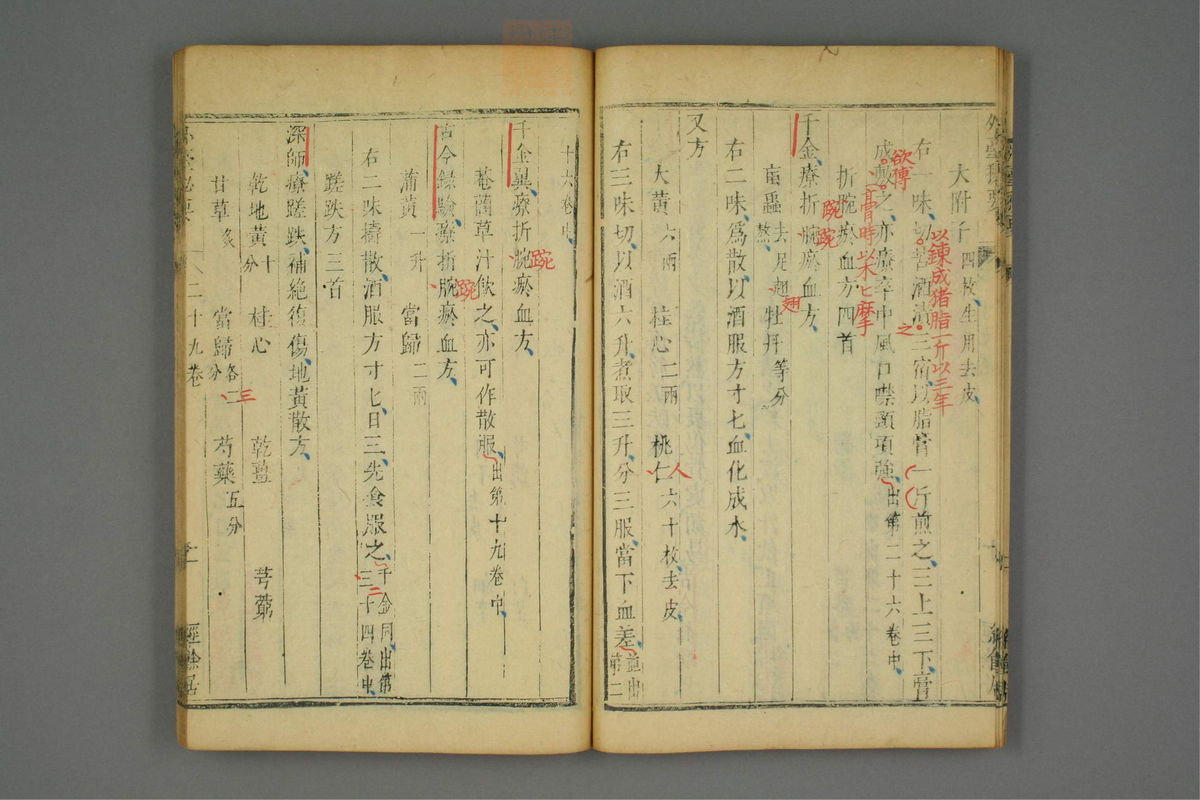 大附子四枚生用去皮
右一味切苦酒漬三宿以脂膏一斤煎之三上三下膏
以鍊成猪脂一斤以三年
之
成敷之亦療卒中風口噤頸項強出第二十六卷中
欲傅
膏時以火匕摩
折腕瘀血方四首
踠
千金療折腕瘀血方
踠
䖟蟲去足翅熬 牡丹等分
翅
右二味為散以酒服方寸匕血化成水
又方
大黃六兩 桂心二兩 桃仁六十枚去皮
人
右三味切以酒六升煮取三升分三服當下血差並出第二
十六卷中
千金異療折腕瘀血方
踠
菴䕡草汁飲之亦可作散服出第十九卷中
古今錄驗療折腕瘀血方
踠
蒲黃一升 當歸二兩
右二味擣散酒服方寸匕日三先食服之千金同出第三十四卷中
二
蹉跌方三首
深師療蹉跌補絕復傷地黃散方
乾地黃十分 桂心 乾薑 芎藭
甘草炙 當歸各二分 芍藥五分
三
二十九卷
經餘居